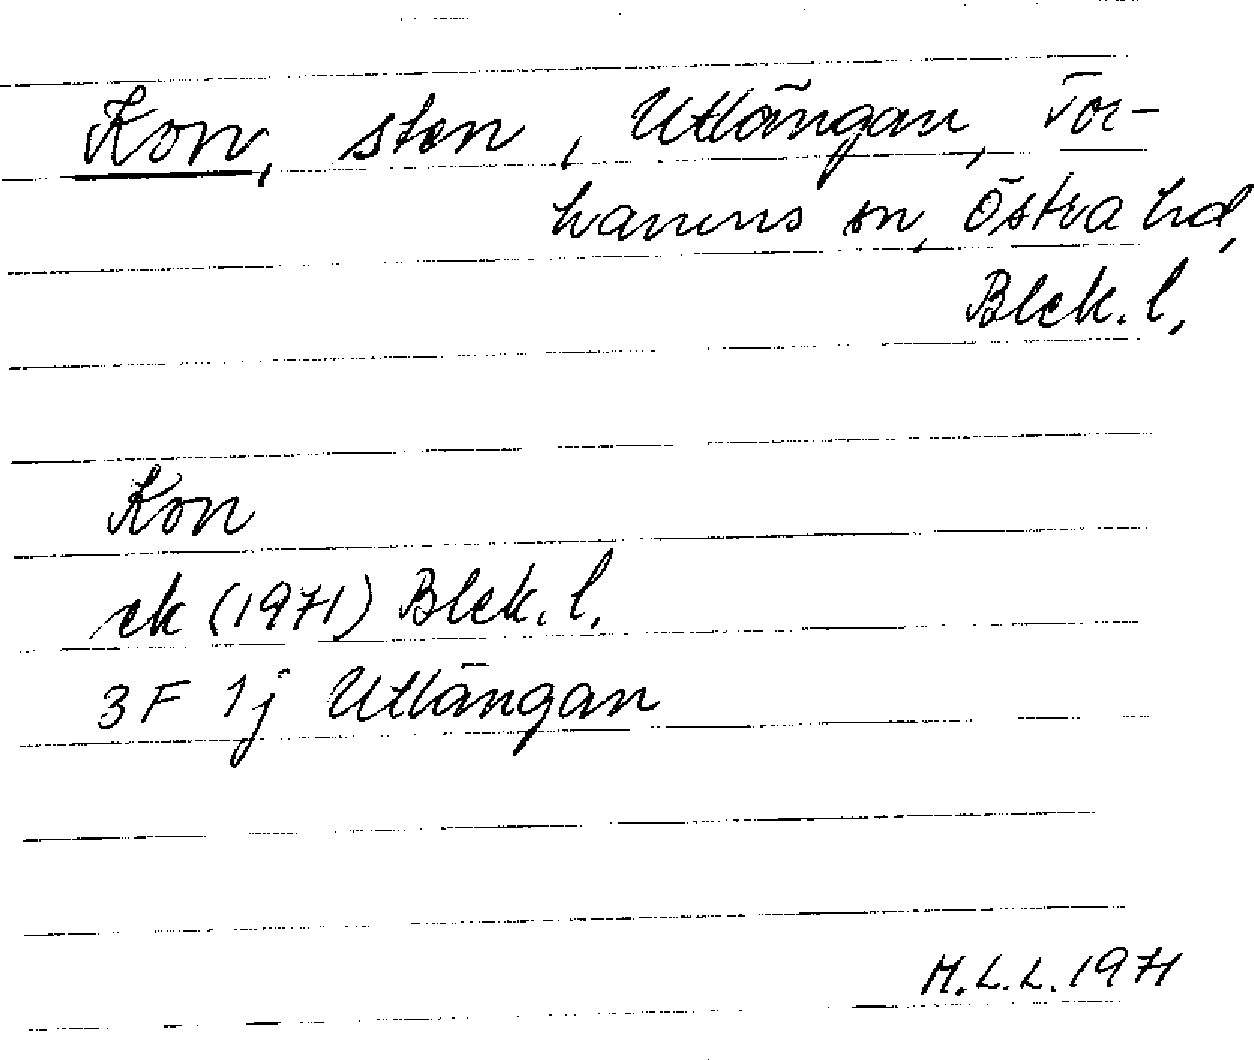 Kon, sten, Utlängan, Tor-
hamns sn, Östra hd,
Blek. l.
Kon
ek (1971) Blek. l.
3F 1j Utlängan
M.L.L. 1971